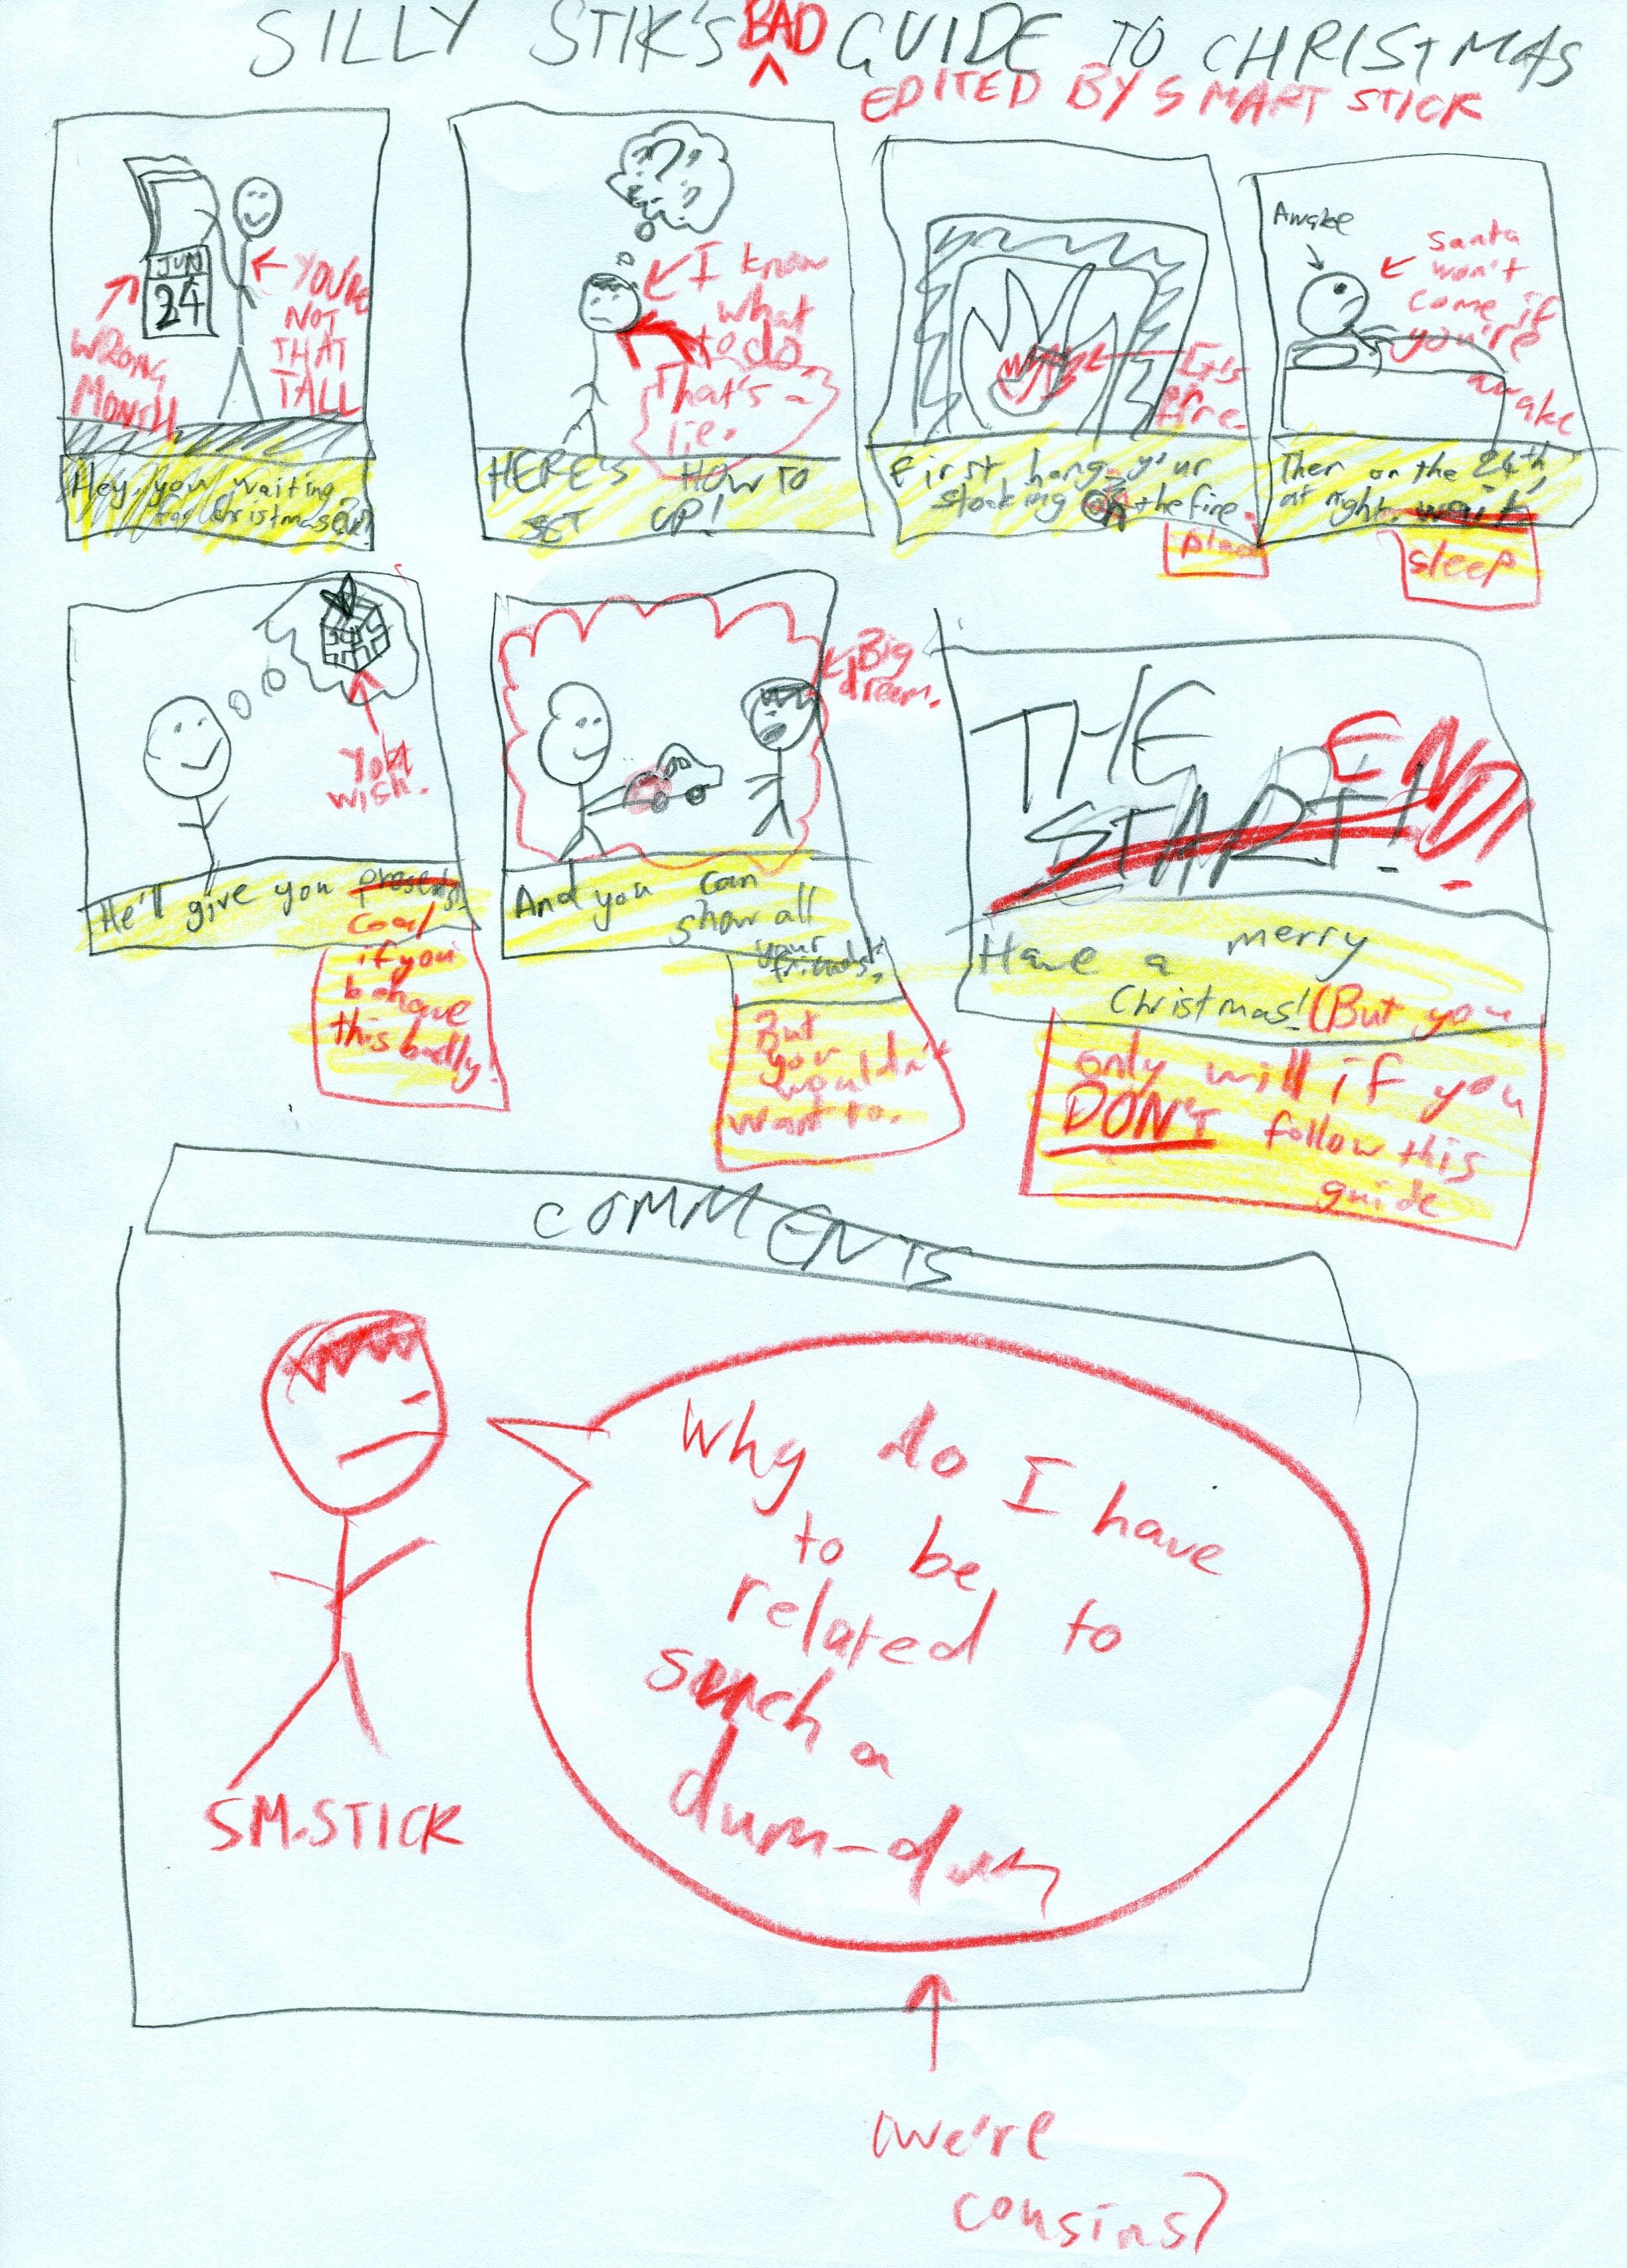 SILLY STIK'S BAD GUIDE TO CHRISTMAS
EDITED BY SMART STICK
JUN
24
WRONG
MONTH
YOU'RE
NOT
THAT
TALL
Hey, you waiting
for christmas?
?
I know
what
to do.
That's a
lie.
HERE'S HOW TO
SET UP!
It's
on
fire.
First hang your
stocking on the fire
place
Awake
Santa
won't
come if
you're
awake
Then on the 24th,
at night, wait
sleep
You
wish.
He'll give you presents!
coal
if you
behave
this badly!
Big
dream.
And you can
show all
your
friends!
But
you
wouldn't
want to.
THE
END!
START!
Have a merry
Christmas! (But you
only will if you
DON'T follow this
guide
COMMENTS
Why do I have
to be
related to
such a
dum-dum
SM.STICK
(We're
cousins)